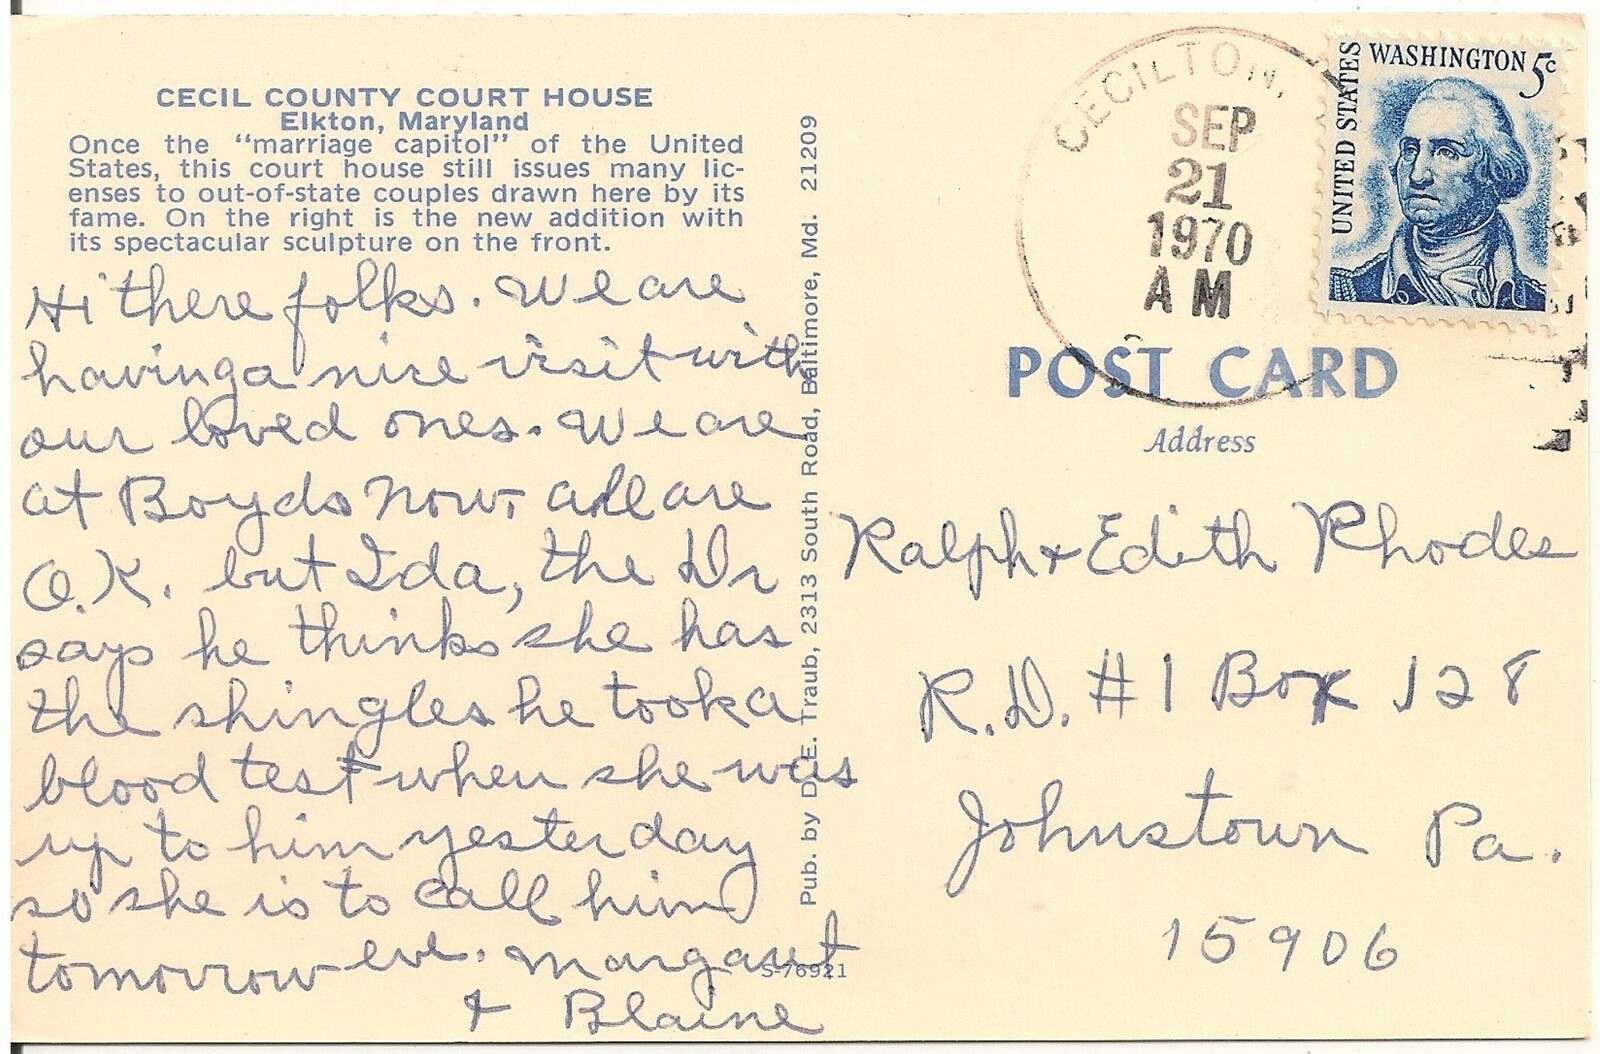 CECIL COUNTY COURT HOUSE
Elkton, Maryland
Once the "marriage capitol" of the United
States, this court house still issues many lic-
enses to out-of-state couples drawn here by its
fame. On the right is the new addition with
its spectacular sculpture on the front.
Hi there folks. We are
having a nice visit with
our loved ones. We are
at Boyds now, all are
O.K. but Ida, the Dr
says he thinks she has
the shingles he took a
blood test when she was
up to him yesterday
so she is to call him
tomorrow eve. Margaret
& Blaine
Pub. by D. E. Traub, 2313 South Road, Baltimore, Md. 21209
S-76921
CECILTON,
SEP
21
1970
AM
UNITED STATES
WASHINGTON 5c
POST CARD
Address
Ralph & Edith Rhodes
R.D. #1 Box 128
Johnstown Pa.
15906